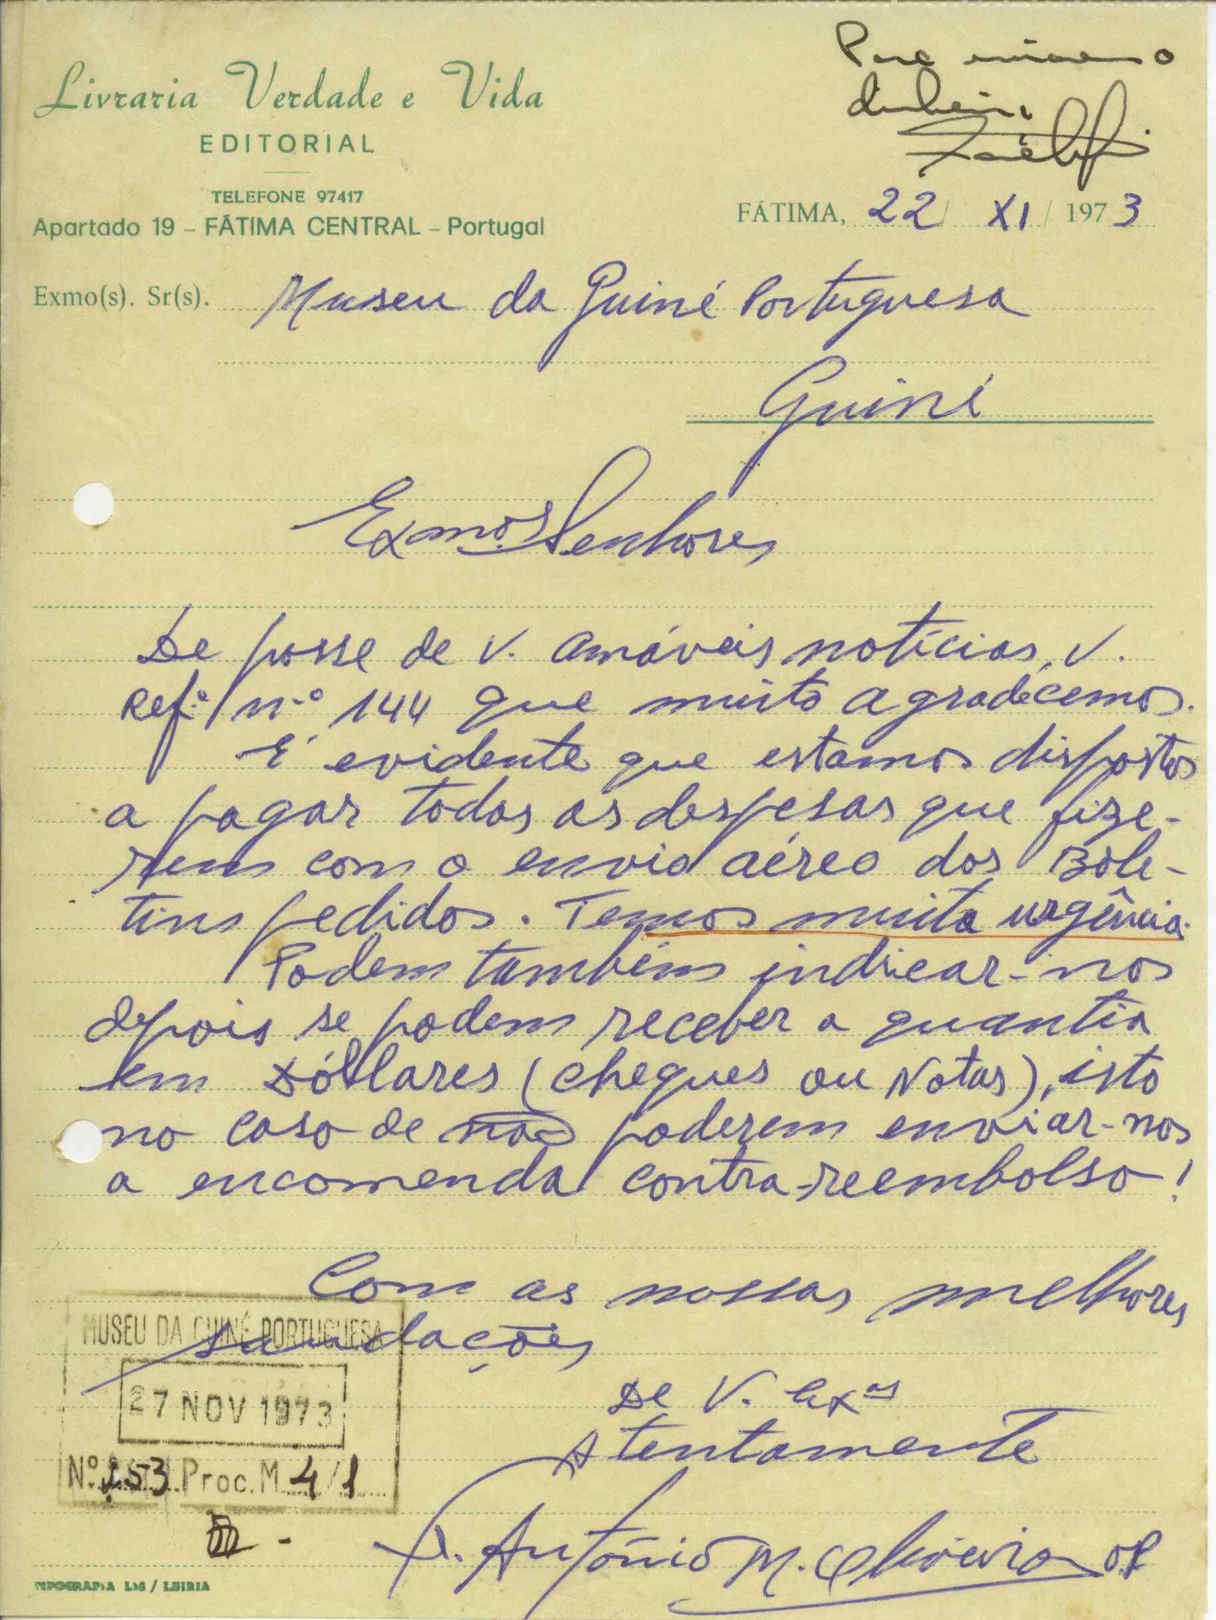 Livraria Verdade e Vida
EDITORIAL
TELEFONE 97417
Apartado 19 – FÁTIMA CENTRAL – Portugal
dinheiro
FÁTIMA, 22 / XI / 1973
Exmo(s). Sr(s). Museu da Guiné Portuguesa
Guiné
Exmos. Senhores
De posse de V. amáveis notícias, V.
Refª nº 144 que muito agradecemos.
É evidente que estamos dispostos
a pagar todas as despesas que fize-
rem com o envio aéreo dos Bole-
tins pedidos. Temos muita urgência.
Podem também indicar-nos
depois se podem receber a quantia
em Dóllares (cheques ou Notas), isto
no caso de não poderem enviar-nos
a encomenda contra-reembolso!
Com as nossas melhores
saudações
De V. Exas
Atentamente
Fr. António M. Oliveira OP
MUSEU DA GUINÉ PORTUGUESA
27 NOV 1973
Nº 153 Proc. M 4/1
TIPOGRAFIA LIS / LEIRIA